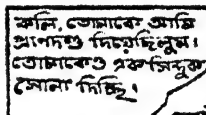 কলি, তোমাকে আমি
প্রাণদণ্ড দিয়েছিলুম।
তোমাকেও এক সিন্দুক
সোনা দিচ্ছি।